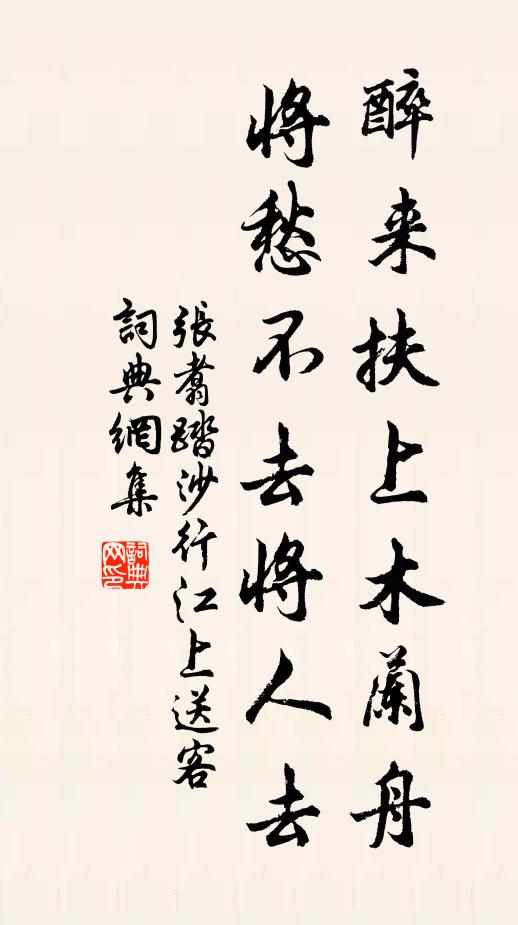 醉来扶上木蘭舟
將愁不去將人去
張翥踏沙行江上送客
詞典網集
詞典网印